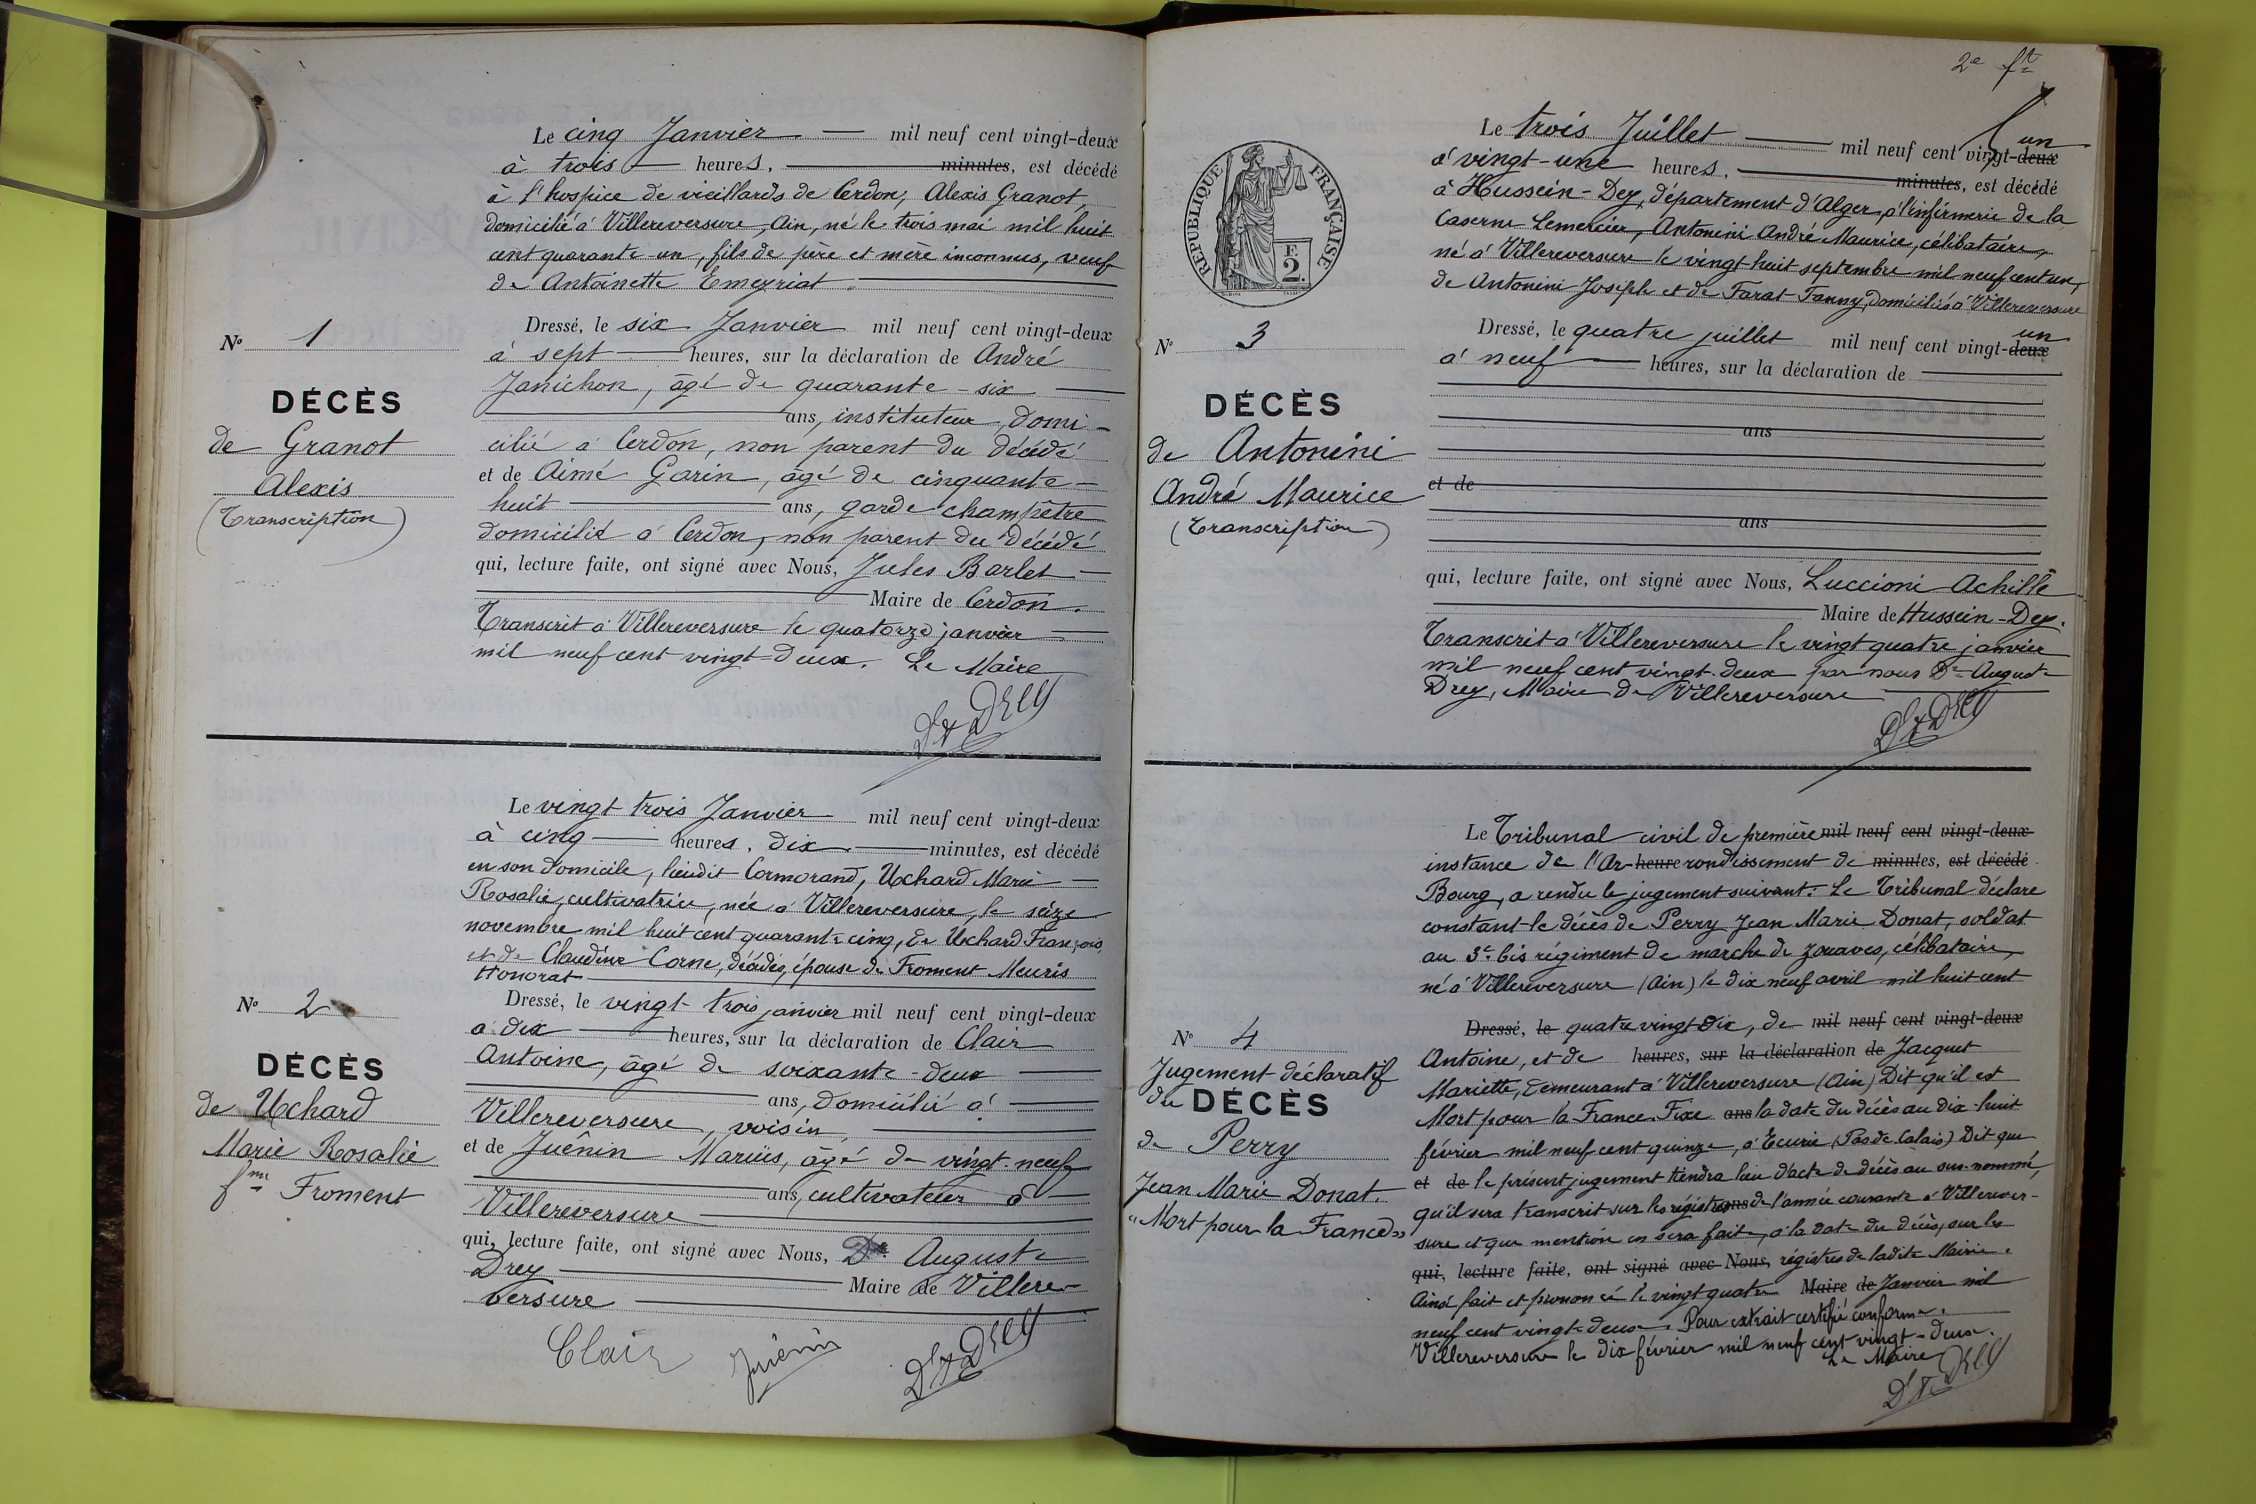 Le cinq Janvier mil neuf cent vingt-deux
à trois heures, minutes, est décédé
à l'hospice de vieillards de Cerdon, Alexis Granot,
domicilié à Villereversure, Ain, né le trois mai mil huit
cent quarante-un, fils de père et mère inconnus, veuf
de Antoinette Emeyriat.
Dressé, le six Janvier mil neuf cent vingt-deux
à sept heures, sur la déclaration de André
Janichon, âgé de quarante-six
ans, instituteur, domi-
cilié à Cerdon, non parent du décédé
et de Aimé Garin, âgé de cinquante-
huit ans, garde champêtre
domicilié à Cerdon, non parent du décédé
qui, lecture faite, ont signé avec Nous, Jules Barlet
Maire de Cerdon.
Transcrit à Villereversure le quatorze janvier
mil neuf cent vingt-deux. Le Maire
Dr A Drey
No 1
DÉCÈS
de Granot
Alexis
(Transcription)
Le vingt trois Janvier mil neuf cent vingt-deux
à cinq heures, dix minutes, est décédé
en son domicile, lieudit Cormorand, Uchard Marie
Rosalie, cultivatrice, née à Villereversure, le seize
novembre mil huit cent quarante cinq, de Uchard François
et de Claudine Corne, décédés, épouse de Froment Meuris
Honorat
Dressé, le vingt-trois janvier mil neuf cent vingt-deux
à dix heures, sur la déclaration de Clair
Antoine, âgé de soixante-deux
ans, domicilié à
Villereversure, voisin
et de Juénin Marius, âgé de vingt-neuf
ans, cultivateur à
Villereversure
qui, lecture faite, ont signé avec Nous, Dr Auguste
Drey Maire de Villere-
versure
Clair Juénin Dr A Drey
No 2
DÉCÈS
de Uchard
Marie Rosalie
fme Froment
2e ft
RÉPUBLIQUE FRANÇAISE
F.
2.
Le trois Juillet mil neuf cent vingt-deux un
à vingt-une heures, minutes, est décédé
à Hussein-Dey, département d'Alger, à l'infirmerie de la
Caserne Lemercier, Antonini André Maurice, célibataire,
né à Villereversure le vingt huit septembre mil neuf cent un,
de Antonini Joseph et de Farat Fanny, domiciliés à Villereversure
Dressé, le quatre juillet mil neuf cent vingt-deux un
à neuf heures, sur la déclaration de
ans
et de
ans
qui, lecture faite, ont signé avec Nous, Luccioni Achille
Maire de Hussein-Dey.
Transcrit à Villereversure le vingt quatre janvier
mil neuf cent vingt-deux par nous Dr Auguste
Drey, Maire de Villereversure
Dr A Drey
No 3
DÉCÈS
de Antonini
André Maurice
(Transcription)
Le Tribunal civil de première mil neuf cent vingt-deux
instance de l'Ar-heurerondissement de minutes, est décédé
Bourg, a rendu le jugement suivant: Le Tribunal déclare
constant le décès de Perry Jean Marie Donat, soldat
au 3e bis régiment de marche de zouaves, célibataire,
né à Villereversure (Ain) le dix neuf avril mil huit cent
Dressé, le quatre vingt dix, de mil neuf cent vingt-deux
Antoine, et de heures, sur la déclaration de Jacquet
Mariette, demeurant à Villereversure (Ain) Dit qu'il est
Mort pour la France. Fixe ans la date du décès au dix-huit
février mil neuf cent quinze, à Ecurie (Pas de Calais) Dit que
et de le présent jugement tiendra lieu d'acte de décès au sus-nommé,
qu'il sera transcrit sur les registres ans de l'année courante à Villerever-
sure et que mention en sera faite, à la date du décès, sur les
qui, lecture faite, ont signé avec Nous, régistres de ladite Mairie.
Ainsi fait et prononcé le vingt quatre Maire de Janvier mil
neuf cent vingt-deux. Pour extrait certifié conforme.
Villereversure le dix février mil neuf cent vingt-deux.
Le Maire
Dr A Drey
No 4
Jugement déclaratif
du DÉCÈS
de Perry
Jean Marie Donat.
"Mort pour la France"